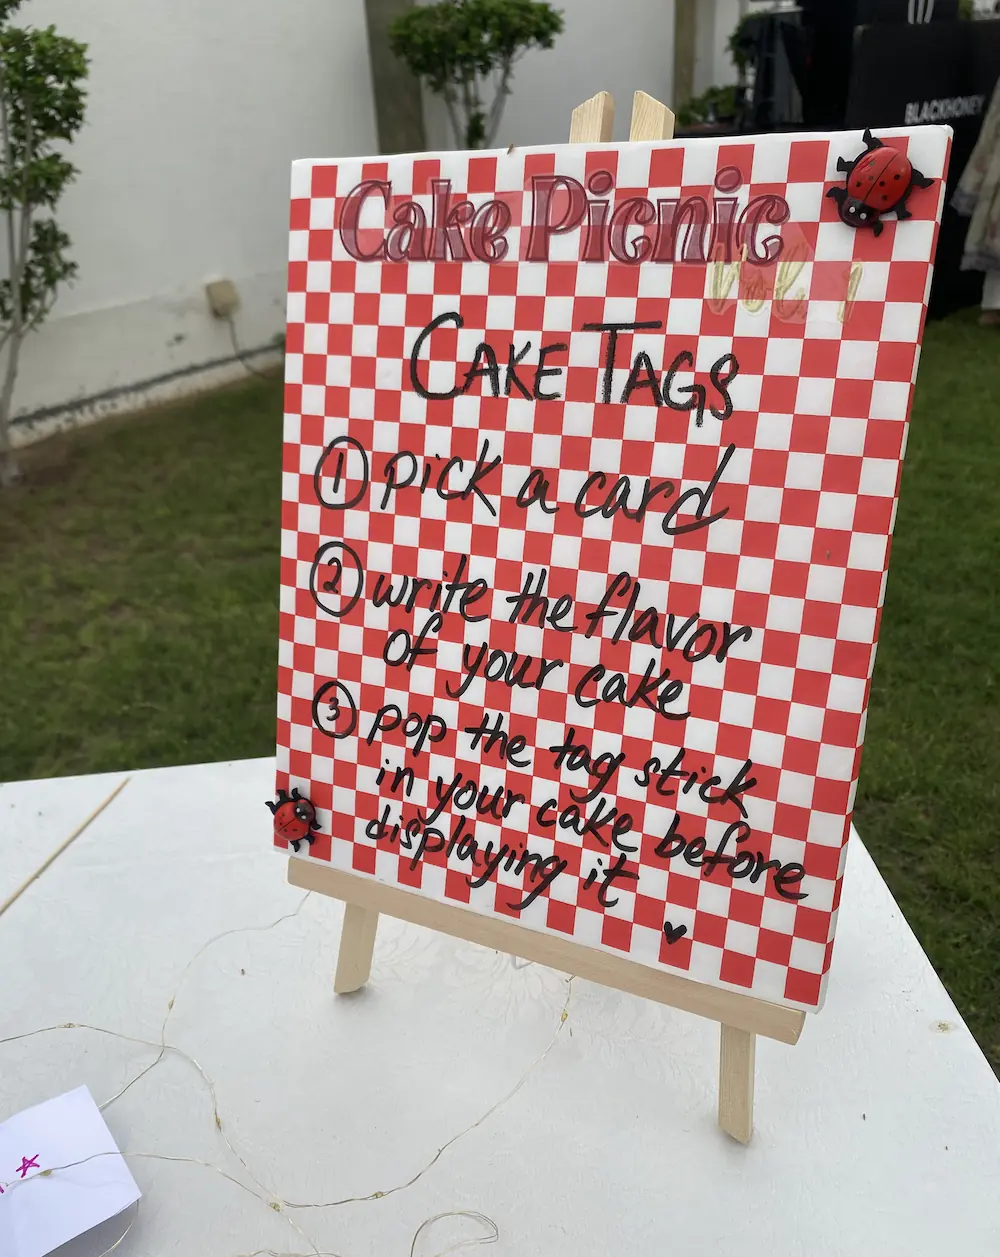 BLACKHONEY
Cake Picnic
Vol. 1
CAKE TAGS
1 pick a card
2 write the flavor
of your cake
3 pop the tag stick
in your cake before
displaying it ♥